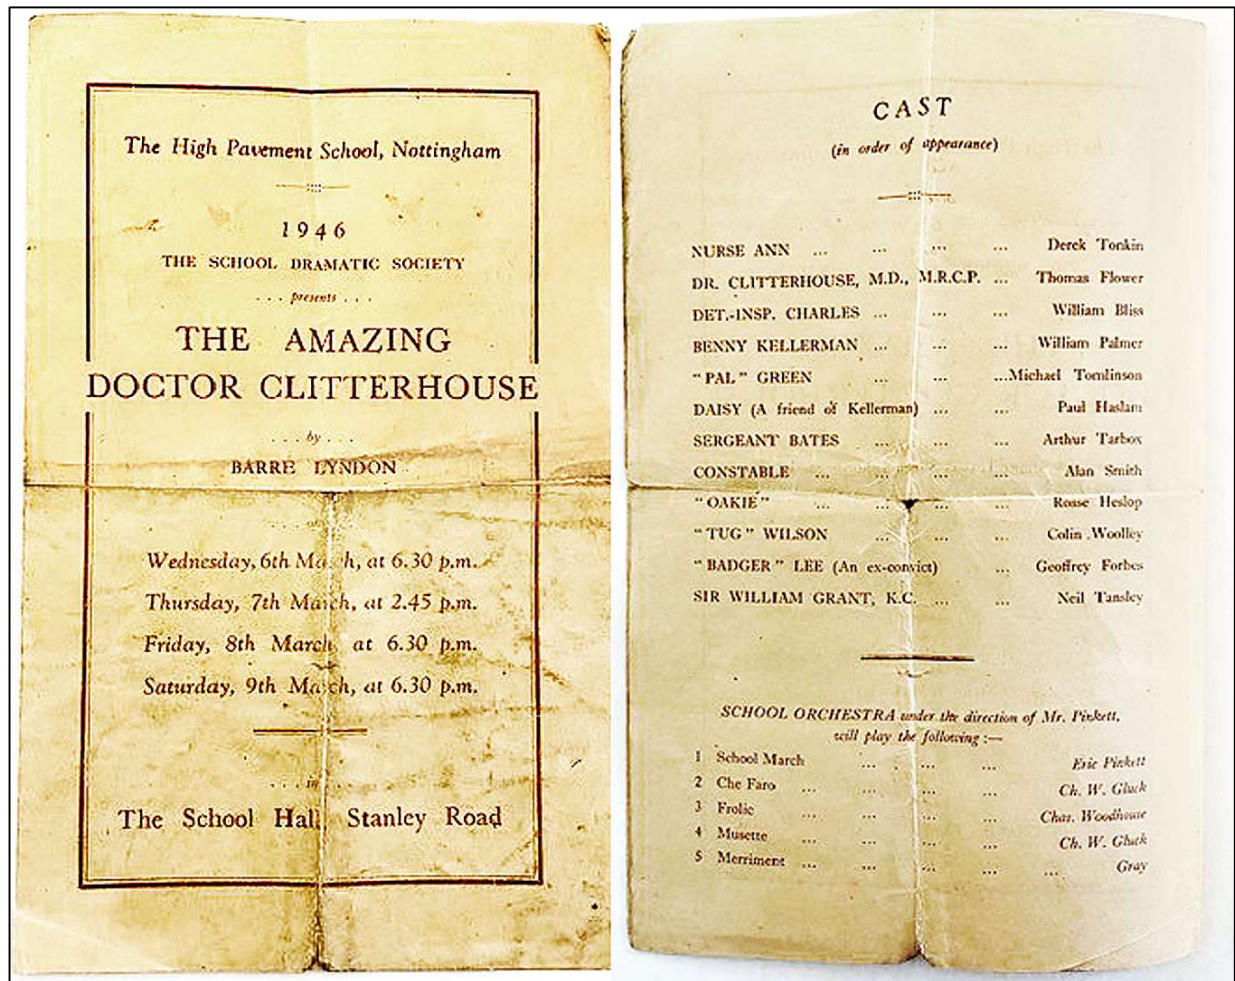 The High Pavement School, Nottingham
1946
THE SCHOOL DRAMATIC SOCIETY
... presents ...
THE AMAZING
DOCTOR CLITTERHOUSE
... by ...
BARRE LYNDON
on
Wednesday, 6th March, at 6.30 p.m.
Thursday, 7th March, at 2.45 p.m.
Friday, 8th March, at 6.30 p.m.
Saturday, 9th March, at 6.30 p.m.
... in ...
The School Hall, Stanley Road
CAST
(in order of appearance)
NURSE ANN ... ... ... ... Derek Tonkin
DR. CLITTERHOUSE, M.D., M.R.C.P. ... Thomas Flower
DET.-INSP. CHARLES ... ... ... William Bliss
BENNY KELLERMAN ... ... ... William Palmer
"PAL" GREEN ... ... ...Michael Tomlinson
DAISY (A friend of Kellerman) ... ... Paul Haslam
SERGEANT BATES ... ... ... Arthur Tarbox
CONSTABLE ... ... ... ... Alan Smith
"OAKIE" ... ... ... ... Rosse Heslop
"TUG" WILSON ... ... ... Colin Woolley
"BADGER" LEE (An ex-convict) ... Geoffrey Forbes
SIR WILLIAM GRANT, K.C. ... ... Neil Tansley
SCHOOL ORCHESTRA under the direction of Mr. Pinkett,
will play the following :—
1 School March ... ... ... Eric Pinkett
2 Che Faro ... ... ... ... Ch. W. Gluck
3 Frolic ... ... ... ... Chas. Woodhouse
4 Musette ... ... ... ... Ch. W. Gluck
5 Merriment ... ... ... ... ... Gray